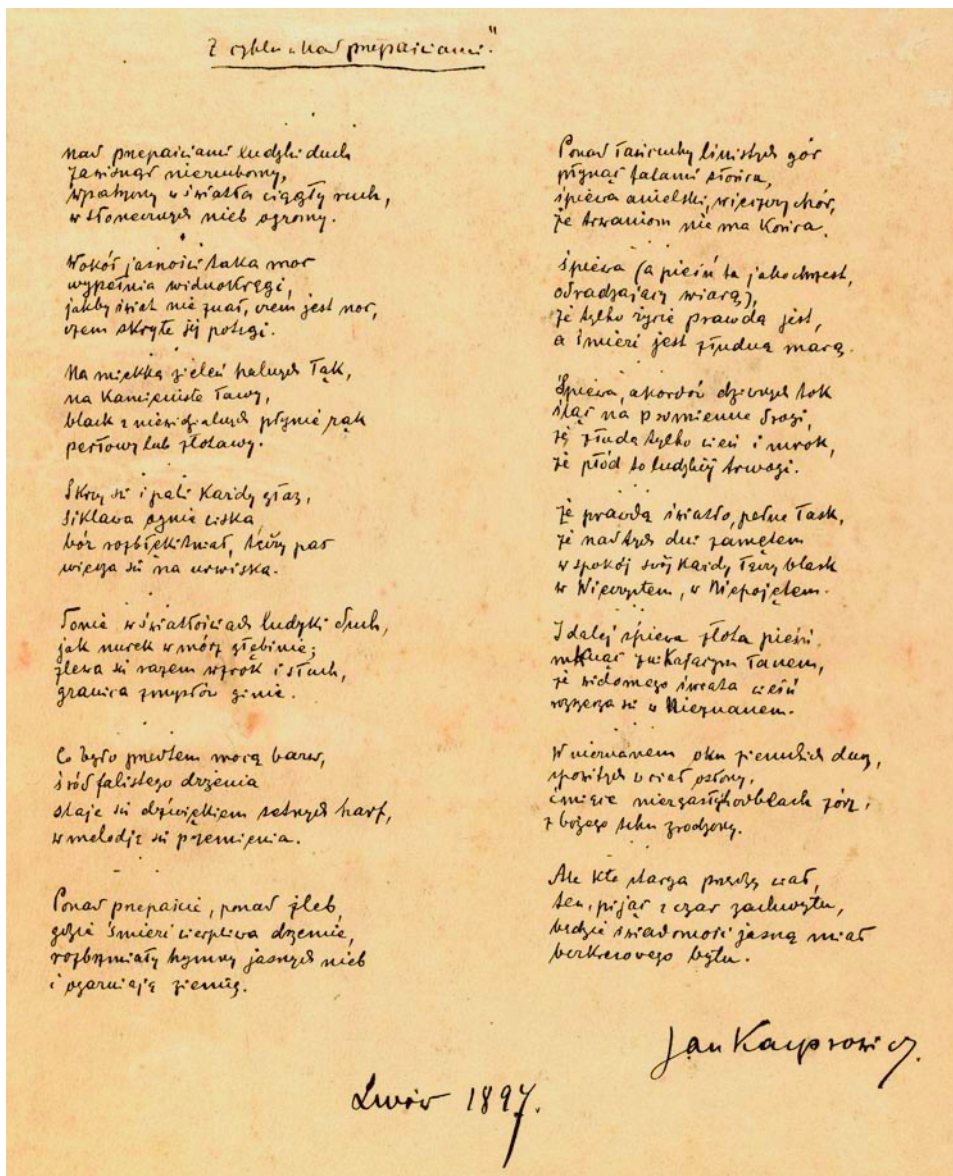 Z cyklu „Nad przepaściami."
Nad przepaściami ludzki duch
zawisnął nieruchomy,
wpatrzony w światła ciągły ruch,
w słonecznych nieb ogromy.
Wokół jasności taka moc
wypełnia widnokręgi,
jakby świat nie znał, czem jest noc,
czem skryte jej potęgi.
Na miękką zieleń halnych łąk,
na kamieniste ławy,
blask z niewidzialnych płynie rąk
perłowy lub złotawy.
Skrzy się i pali każdy głaz,
siklawa ognie ciska,
bór rozbłękitniał, tęczy pas
wiesza się na urwiska.
Tonie w światłościach ludzki duch,
jak nurek w mórz głębinie;
zlewa się razem wzrok i słuch,
granica zmysłów ginie.
Co było przedtem mocą barw,
śród falistego drżenia
staje się dźwiękiem setnych harf,
w melodję się przemienia.
Ponad przepaście, ponad żleb,
gdzie śmierć cierpliwa drzemie,
rozbrzmiały hymny jasnych nieb
i ogarniają ziemię.
Ponad łańcuchy lśnistych gór
płynąc falami słońca,
śpiewa anielski, wieczny chór,
że trwaniom nie ma końca.
Śpiewa (a pieśń ta jako chrzest,
odradzający wiarą),
że tylko życie prawdą jest,
a śmierć jest złudną marą.
Śpiewa, akordów dziwnych tok
śląc na promienne drogi,
że złudą tylko cień i mrok,
że płód to ludzkiej trwogi.
Że prawdą światło, pełne łask,
że nad tych dni zamętem
w spokój swój każdy łączy blask
w Wieczystem, w Niepojętem.
I dalej śpiewa złota pieśń,
mknąc zwichrzonym łanem,
że widomego świata cieśń
rozszerza się w Nieznanem.
W nieznanem oku ziemskich dusz,
spowitych w ciał osłony,
ćmi się niezgasłych blask zórz,
z bożego tchu zrodzony.
Ale kto starga przędzę ciał,
ten, pijąc z czar zachwytu,
będzie świadomość jasną miał
bezkresowego bytu.
Jan Kasprowicz.
Lwów 1897.